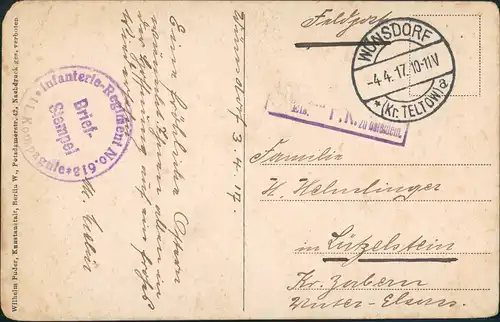 Wilhelm Peder, Kunstanstalt, Berlin W., Potsdamerstr. 42, Nachdruck ges. verboten.
Wünsdorf 3.4.17.
Eine fröhliche Ostern
wünscht Ihnen allen in
der Hoffnung auf ein frohes
Wiedersehen
Infanterie-Regiment No. 618
11. Kompagnie
Brief-
Stempel
Feldpost
WÜNSDORF
-4.4.17.10-11V
*(Kr. TELTOW)a
I.R. zu
Familie
H. Helmlinger
in Lützelstein
Kr. Zabern
Unter-Elsass.